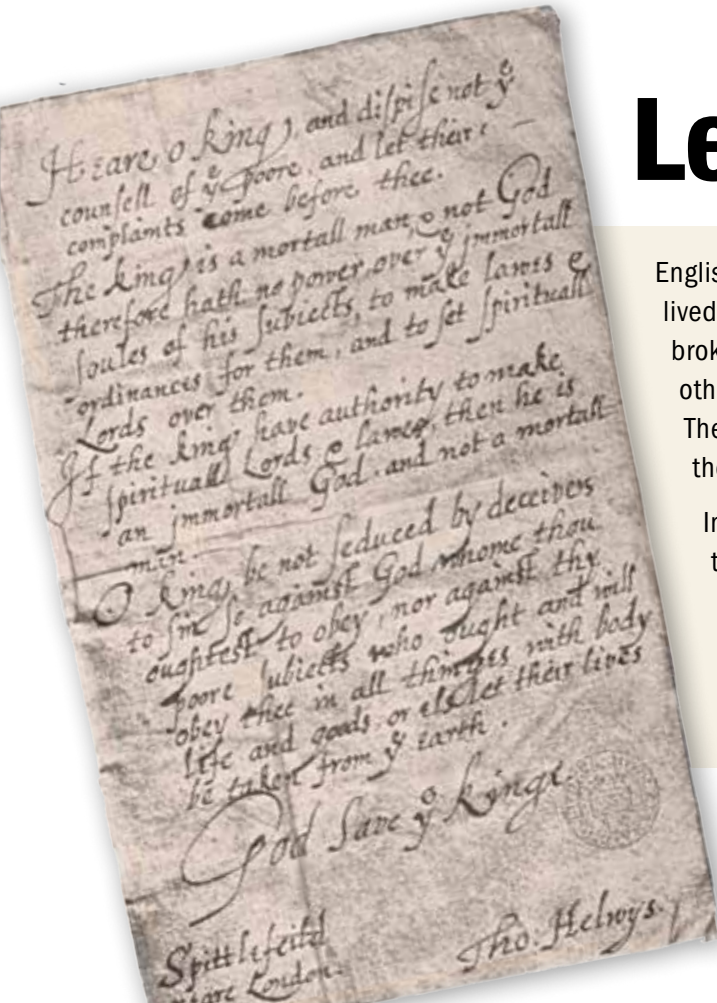 Heare, o King, and dispise not yͤ
counsell of yͤ poore, and let their
complaints come before thee.
The King is a mortall man, & not God
therefore hath no power over yͤ immortall
soules of his subiects, to make lawes &
ordinances for them, and to set spirituall
Lords over them.
If the King have authority to make
spirituall Lords & lawes, then he is
an immortall God, and not a mortall
man.
O King, be not seduced by deceivers
to sin so against God whome thou
oughtest to obey, nor against thy
poore subiects who ought and will
obey thee in all thinges with body
life and goods, or els let their lives
be taken from yͤ earth.
God Save yͤ Kinge
Spittlefeild
neare London.
Tho: Helwys.
Le
Englis
lived
brok
oth
The
the
In
t